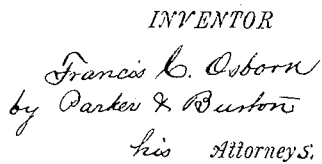 INVENTOR
Francis C. Osborn
by Parker & Burton
his Attorneys.